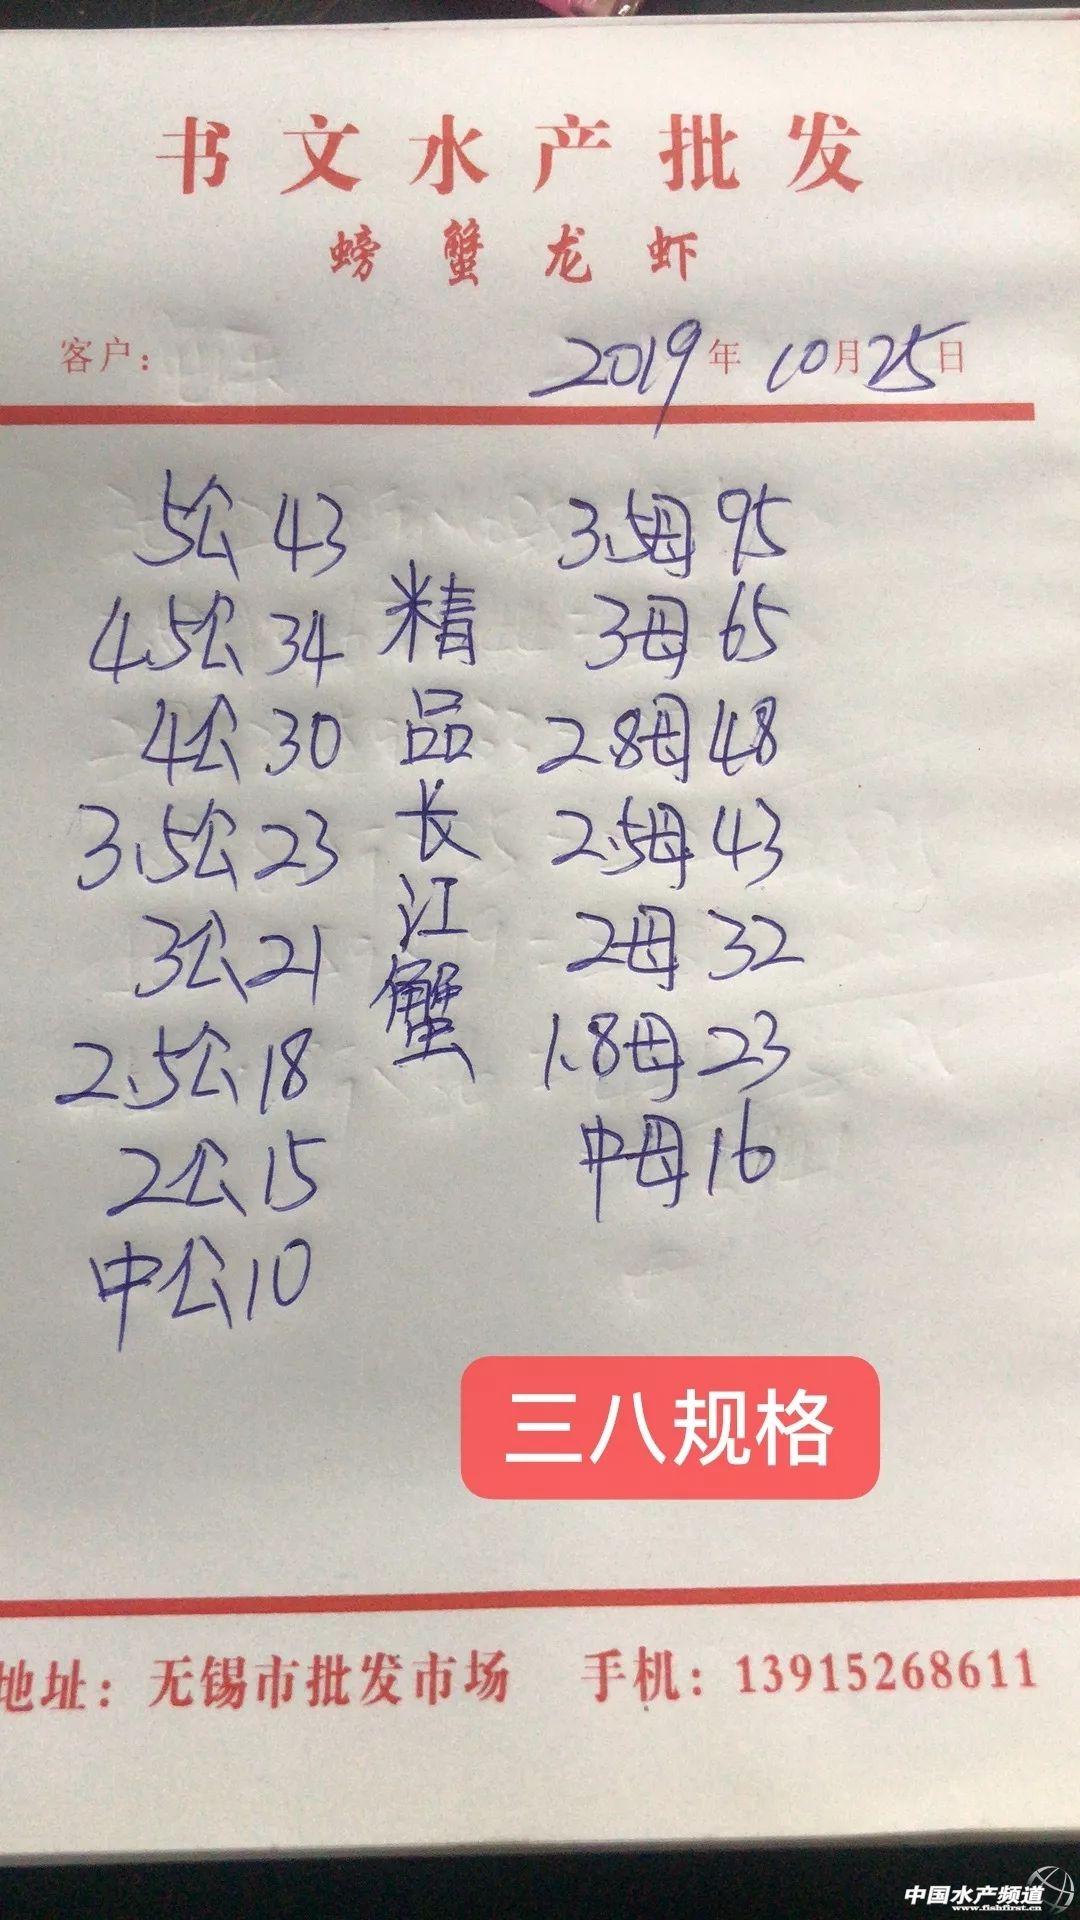 书文水产批发
螃蟹龙虾
客户：
2019年10月25日
5公 43
4.5公 34
4公 30
3.5公 23
3公 21
2.5公 18
2公 15
中公 10
精品长江蟹
3.5母 95
3母 65
2.8母 48
2.5母 43
2母 32
1.8母 23
中母 16
三八规格
地址：无锡市批发市场 手机：13915268611
中国水产频道
www.fishfirst.cn